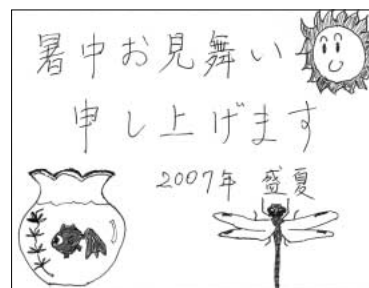 暑中お見舞い
申し上げます
2007年 盛夏